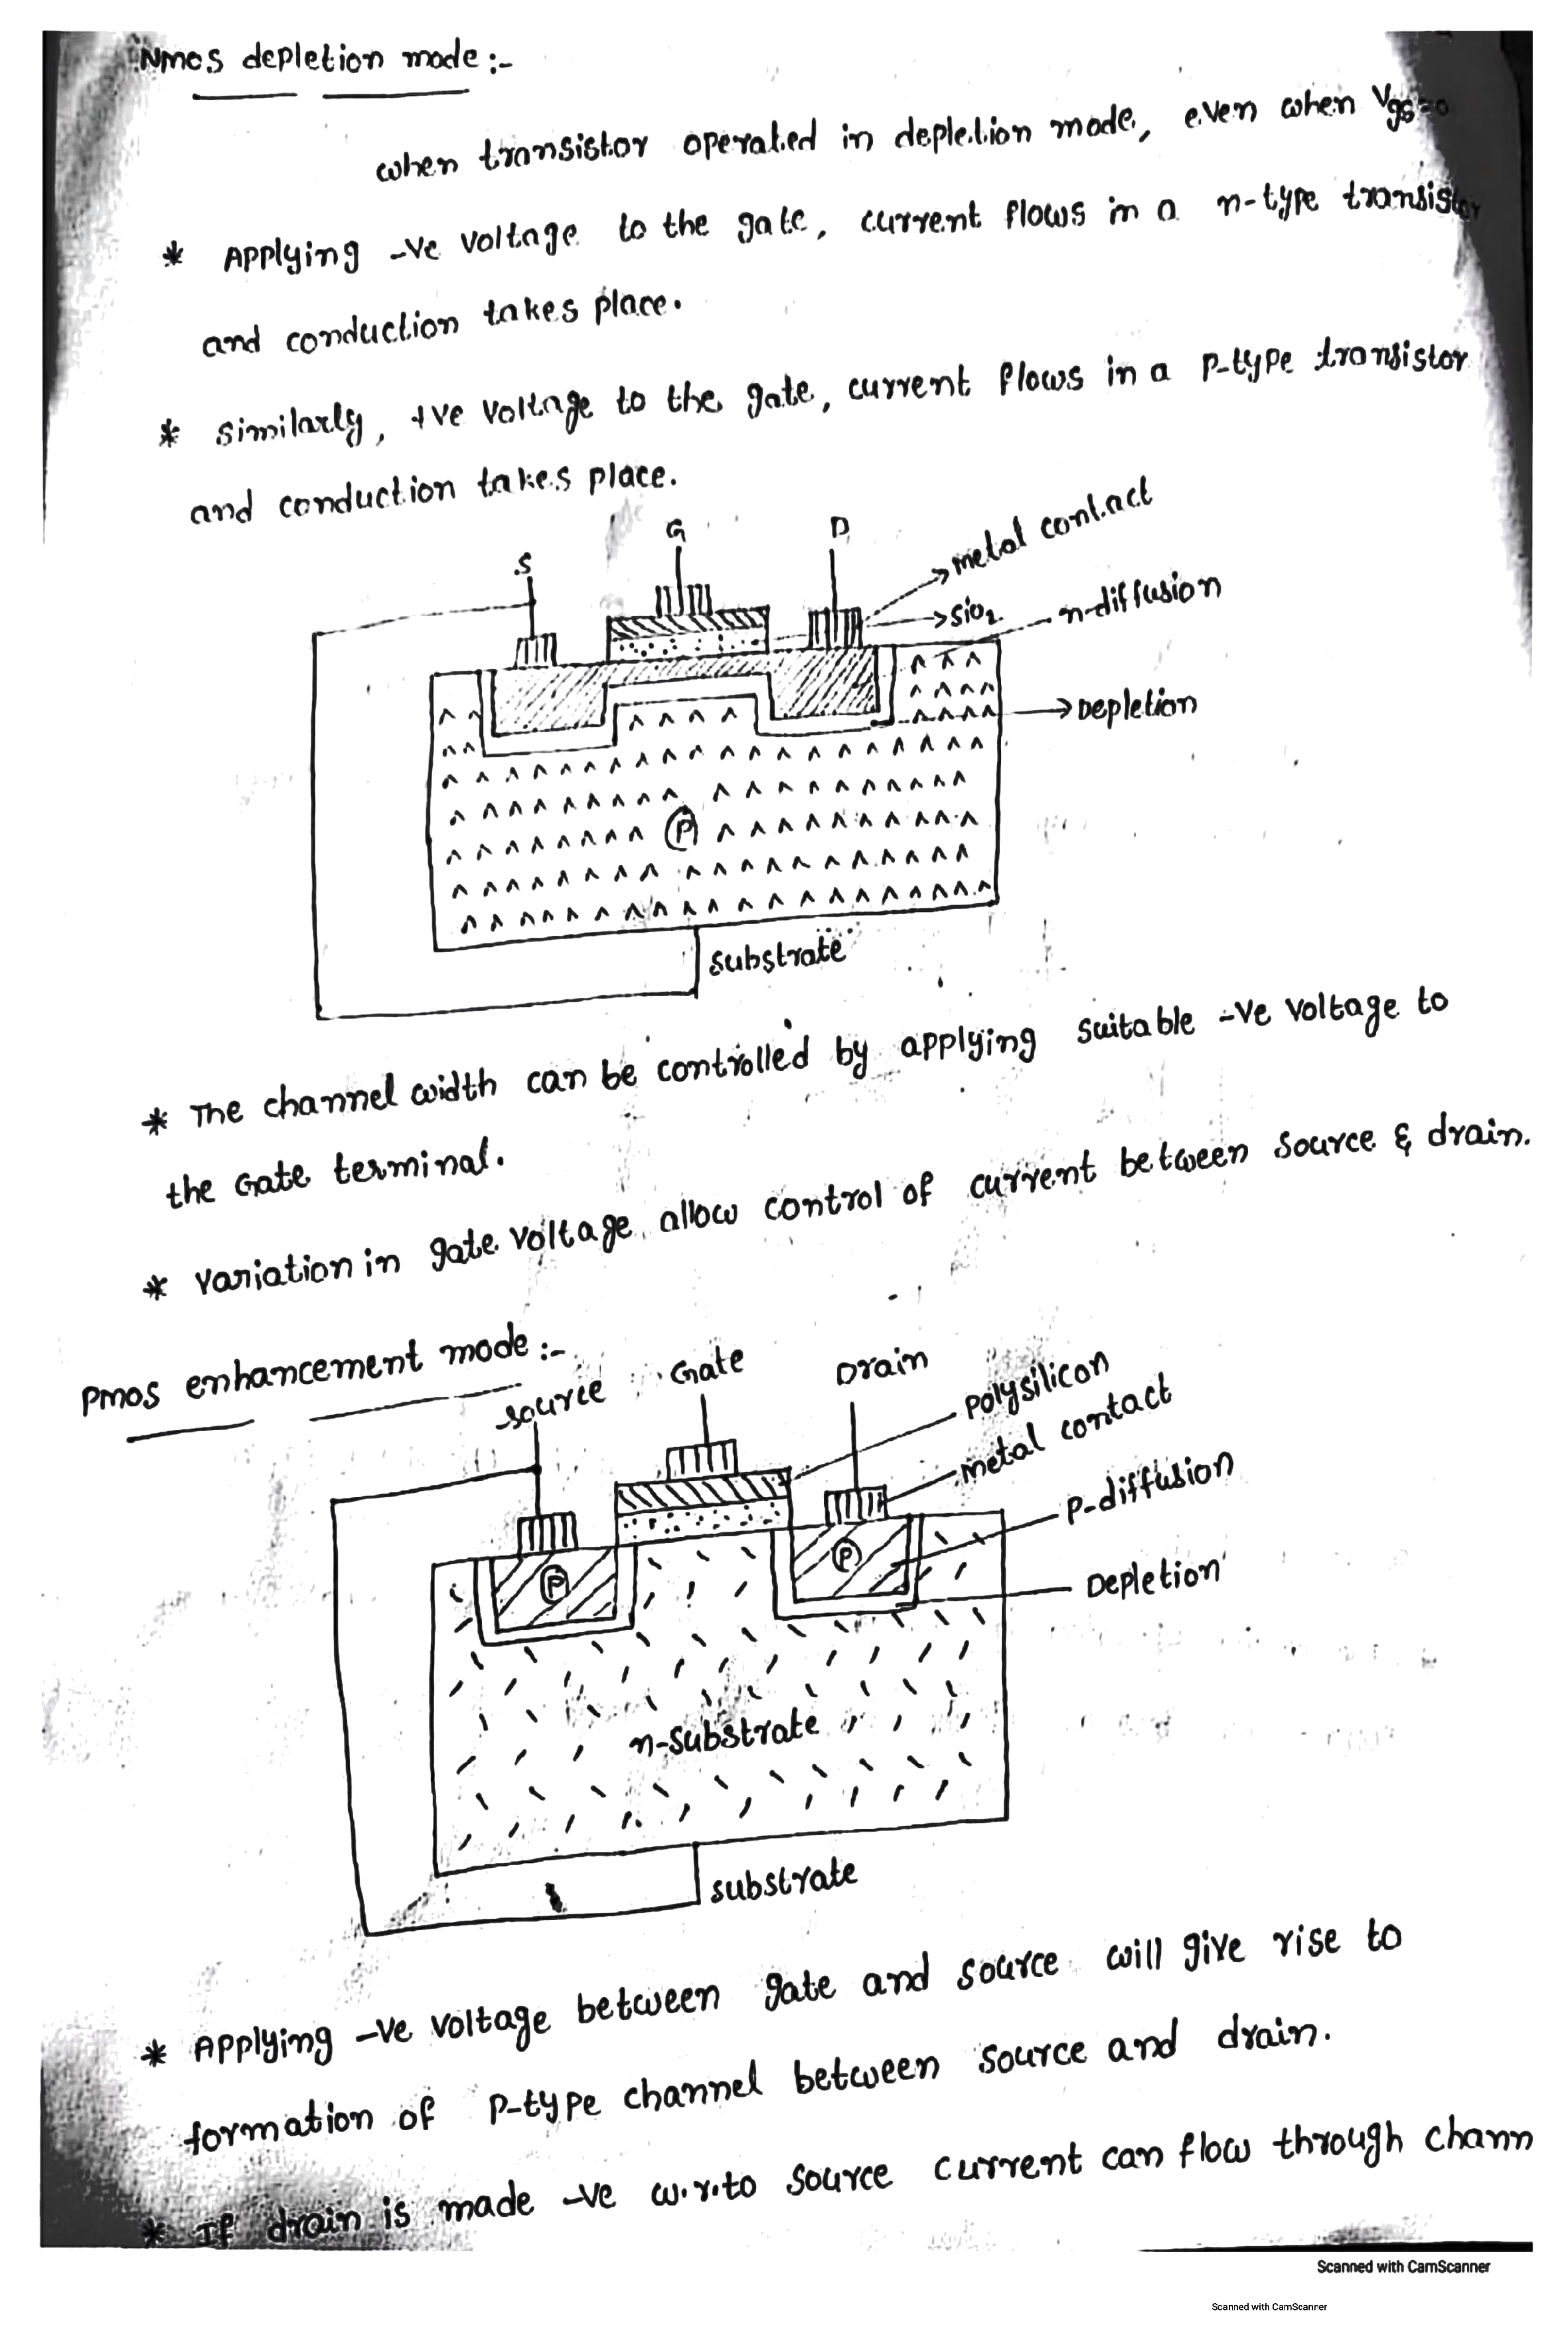 Nmos depletion mode :-
when transistor operated in depletion mode, even when Vgs=0
* Applying -ve voltage to the gate, current flows in a n-type transistor
and conduction takes place.
* similarly, +ve voltage to the gate, current flows in a p-type transistor
and conduction takes place.
S G D
metal contact
SiO2
n-diffusion
Depletion
P
substrate
* The channel width can be controlled by applying suitable -ve voltage to
the Gate terminal.
* variation in gate voltage allow control of current between source & drain.
Pmos enhancement mode :-
source Gate Drain
polysilicon
metal contact
p-diffusion
Depletion
P P
n-substrate
substrate
* Applying -ve voltage between gate and source will give rise to
formation of p-type channel between source and drain.
* If drain is made -ve w.r.to source current can flow through chann
Scanned with CamScanner
Scanned with CamScanner